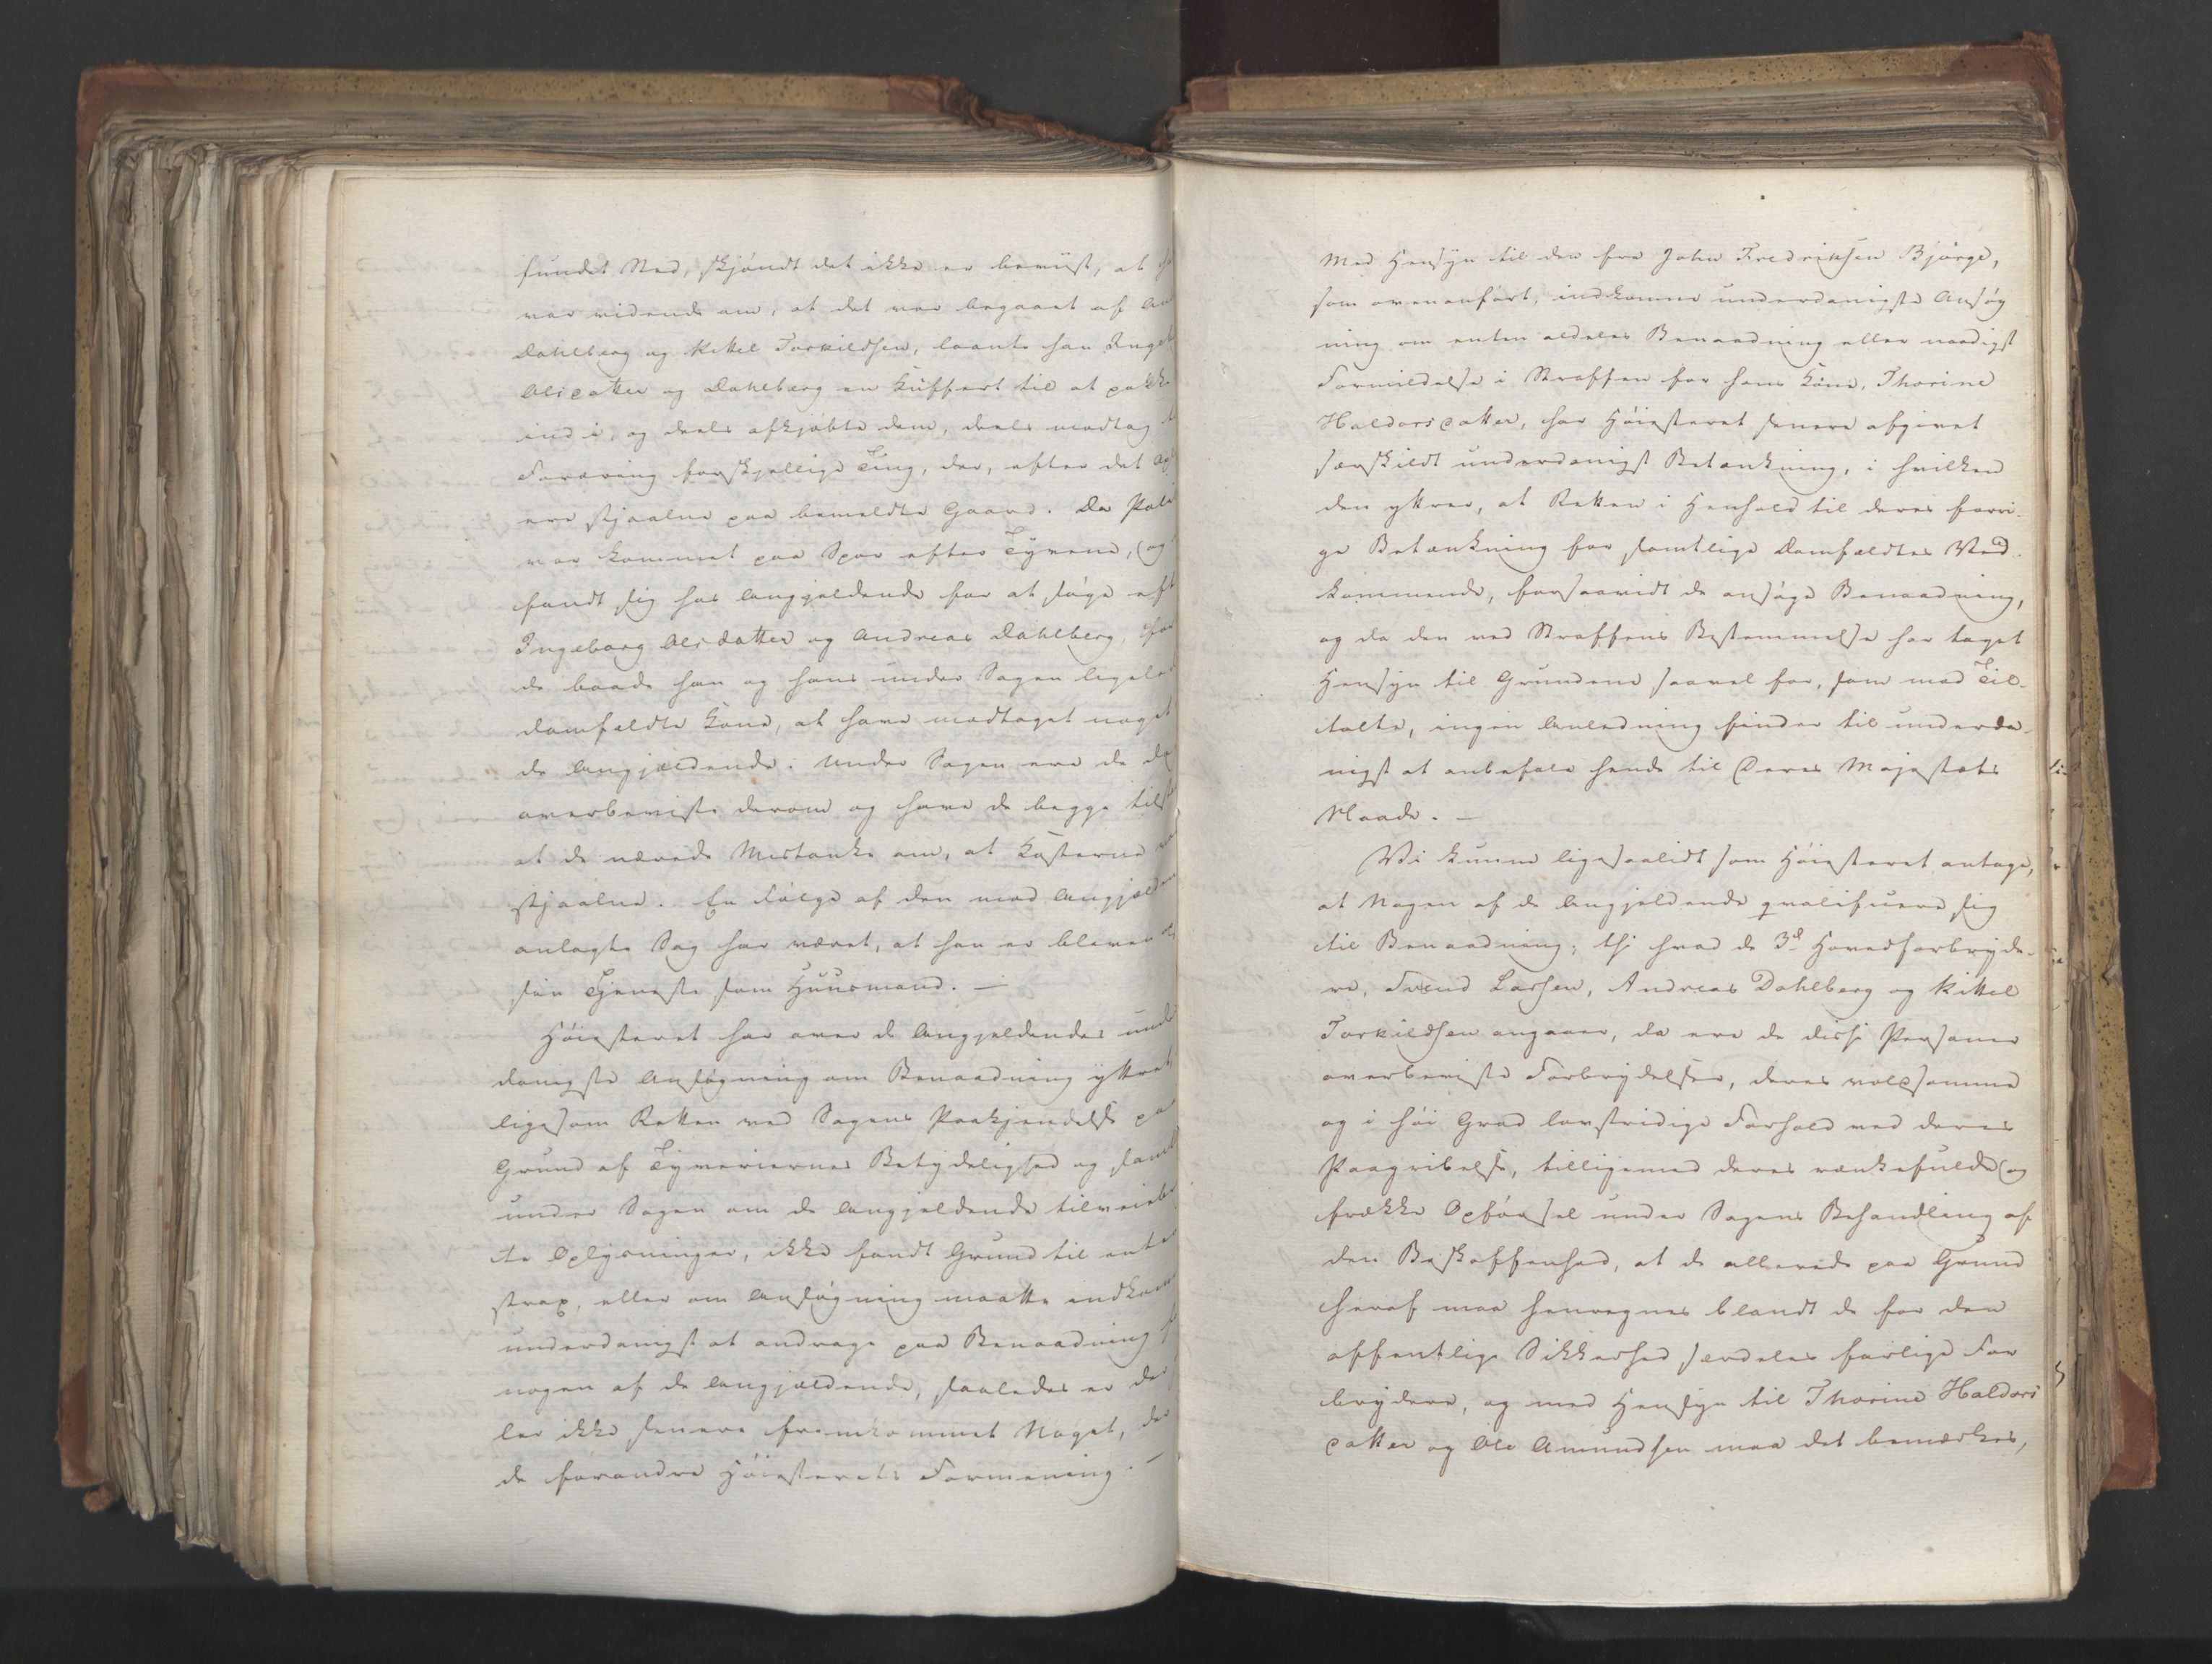 fundet Sted, skjøndt det ikke er beviist, at
var vidende om, at det var begaaet af
Dahlberg og Kittel Torkildsen, laante han
Olsdatter og Dahlberg en Kuffert til at pakke
ind i, og deels afkjøbte dem, deels modtog
Foræring forskjellige Ting, der, efter det
ere stjaalne paa bemeldte Gaard. Da
var kommet paa Spor efter Tyvene, og
fandt sig hos Angjeldende for at søge
Ingeborg Olsdatter og Andreas Dahlberg,
de baade han og hans under Sagen
domfældte Kone, at have modtaget noget
de Angjældende. Under Sagen ere de
overbeviste derom og have de begge
at de nærede Mistanke om, at Kosterne
stjaalne. En Følge af den mod
anlagte Sag har været, at han er bleven
sin Tjeneste som Huusmand. —
Høiesteret har over de Angjeldendes
danigste Ansøgning om Benaadning yttret
ligesom Retten ved Sagens Paakjendelse
Grund af Tyveriernes Betydelighed og
under Sagen om de Angjeldende
te Oplysninger, ikke fandt Grund til
strax, eller om Ansøgning maatte indkomme
underdanigst at andrage paa Benaadning
nogen af de Angjældende, saaledes er
ler ikke senere fremkommet Noget,
de forandre Høiesterets Formening. —
Med Hensyn til den fra John Fredriksen Bjørge,
som ovenanført, indkomne underdanigste Ansøg
ning om enten aldeles Benaadning eller naadigst
Formildelse i Straffen for hans Kone, Thorine
Haldorsdatter, har Høiesteret senere afgivet
særskildt underdanigst Betænkning, i hvilken
den yttrer, at Retten i Henhold til deres forri-
ge Betænkning for samtlige Domfældtes Ved-
kommende, forsaavidt de ansøge Benaadning,
og da den ved Straffens Bestemmelse har taget
Hensyn til Grundene saavel for, som mod Til-
talte, ingen Anledning finder til underda-
nigst at anbefale hende til Deres Majestæts
Naade. —
Vi kunne ligesaalidt som Høiesteret antage,
at Nogen af de Angjeldende qvalificere sig
til Benaadning; thi hvad de 3de Hovedforbryde-
re, Svend Larsen, Andreas Dahlberg og Kittel
Torkildsen angaaer, da ere de disse Personer
overbeviste Forbrydelser, deres voldsomme
og i høi Grad lovstridige Forhold ved deres
Paagribelse, tilligemed deres rænkefulde og
frække Opførsel under Sagens Behandling af
den Beskaffenhed, at de allerede paa Grund
heraf maa henregnes blandt de for den
offentlige Sikkerhed særdeles farlige For
brydere, og med Hensyn til Thorine Haldors
datter og Ole Amundsen maa det bemærkes,